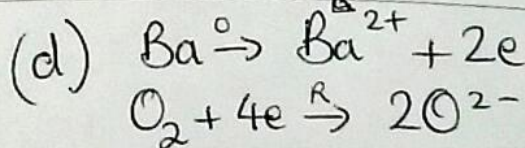 (d) Ba →º Ba²⁺ + 2e
O₂ + 4e →ᴿ 2O²⁻